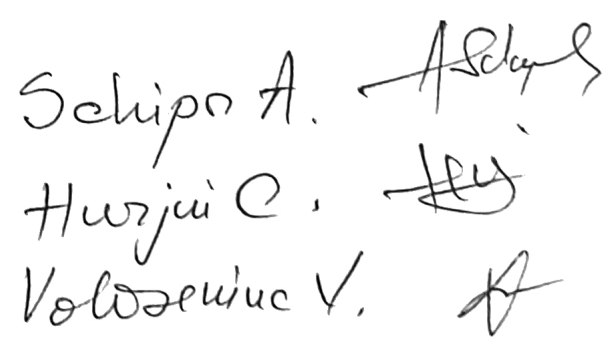 Schipo A.
Hurjui C.
Voloseniuc V.